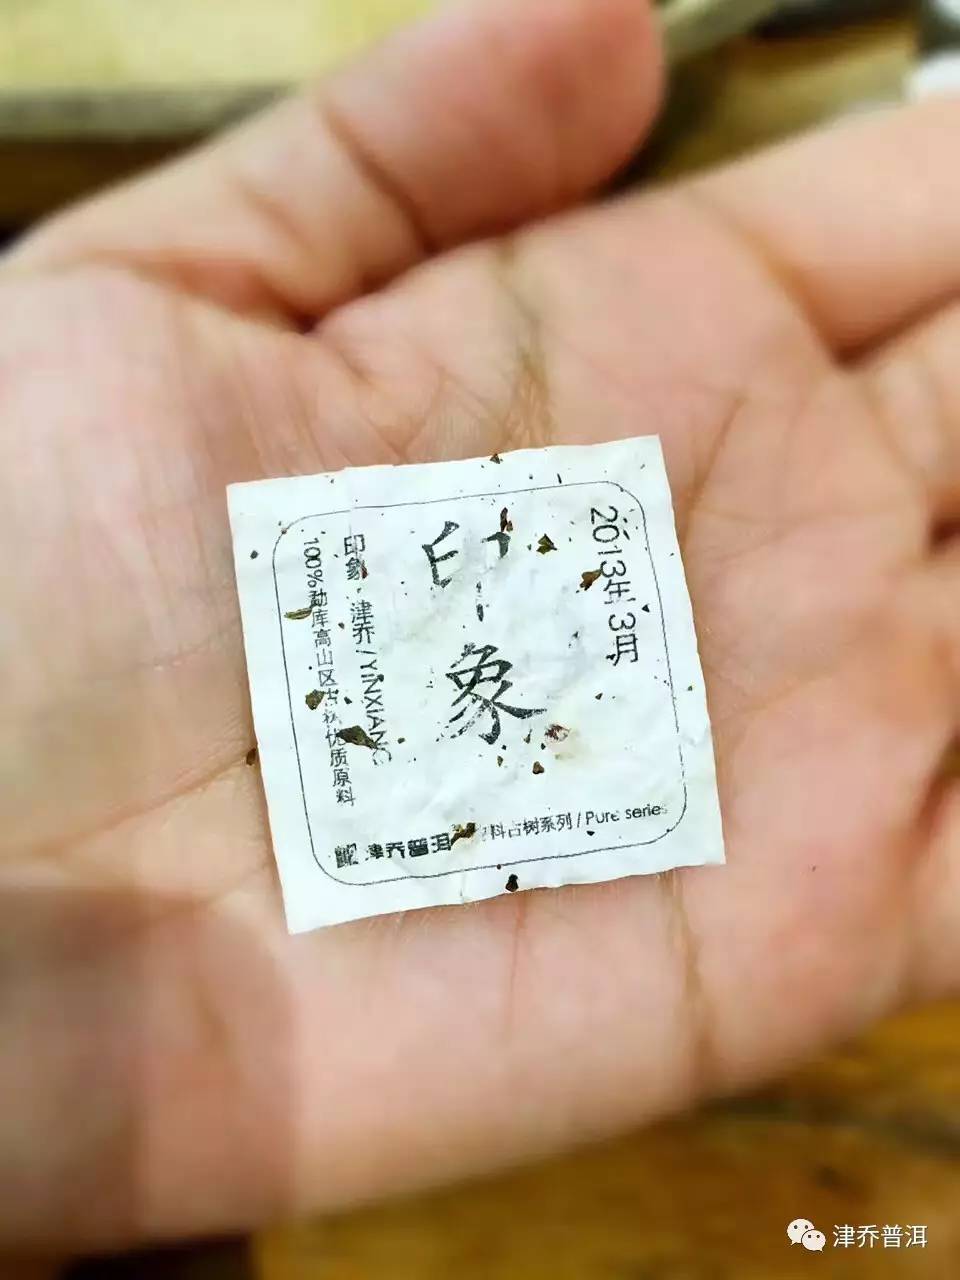 2013年3月
印象
印象·津乔/YINXIANG
100%勐库高山区古树优质原料
津乔普洱
料古树系列/Pure series
津乔普洱